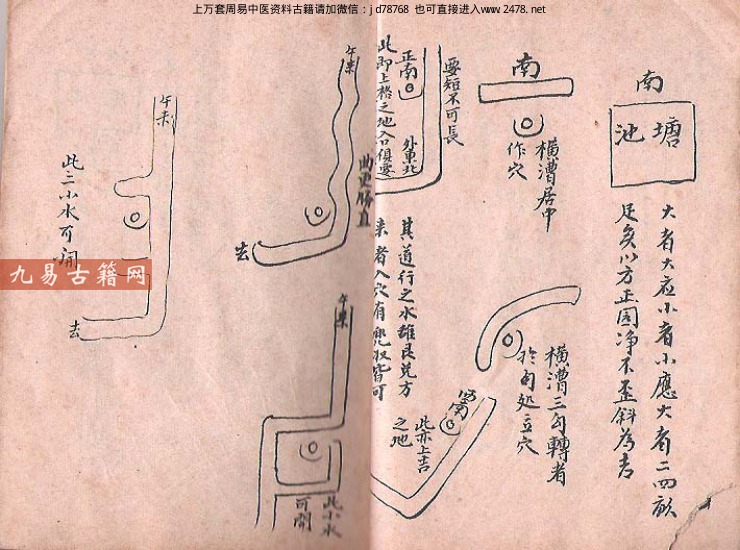 上万套周易中医资料古籍请加微信：jd78768 也可直接进入www.2478.net
南
塘
池
大者大应小者小應大者二四畝
足矣以方正圆净不歪斜為吉
南
橫漕居中
作穴
橫漕三勾轉者
於勾処立穴
要短不可長
正南
外東北
此即上格之地入口俱要
其道行之水雖艮兑方
来者入穴有兜收皆可
西南
此亦上吉
之地
午来
曲更勝直
去
午来
此小水
可開
午来
此二小水可開
去
九易古籍网